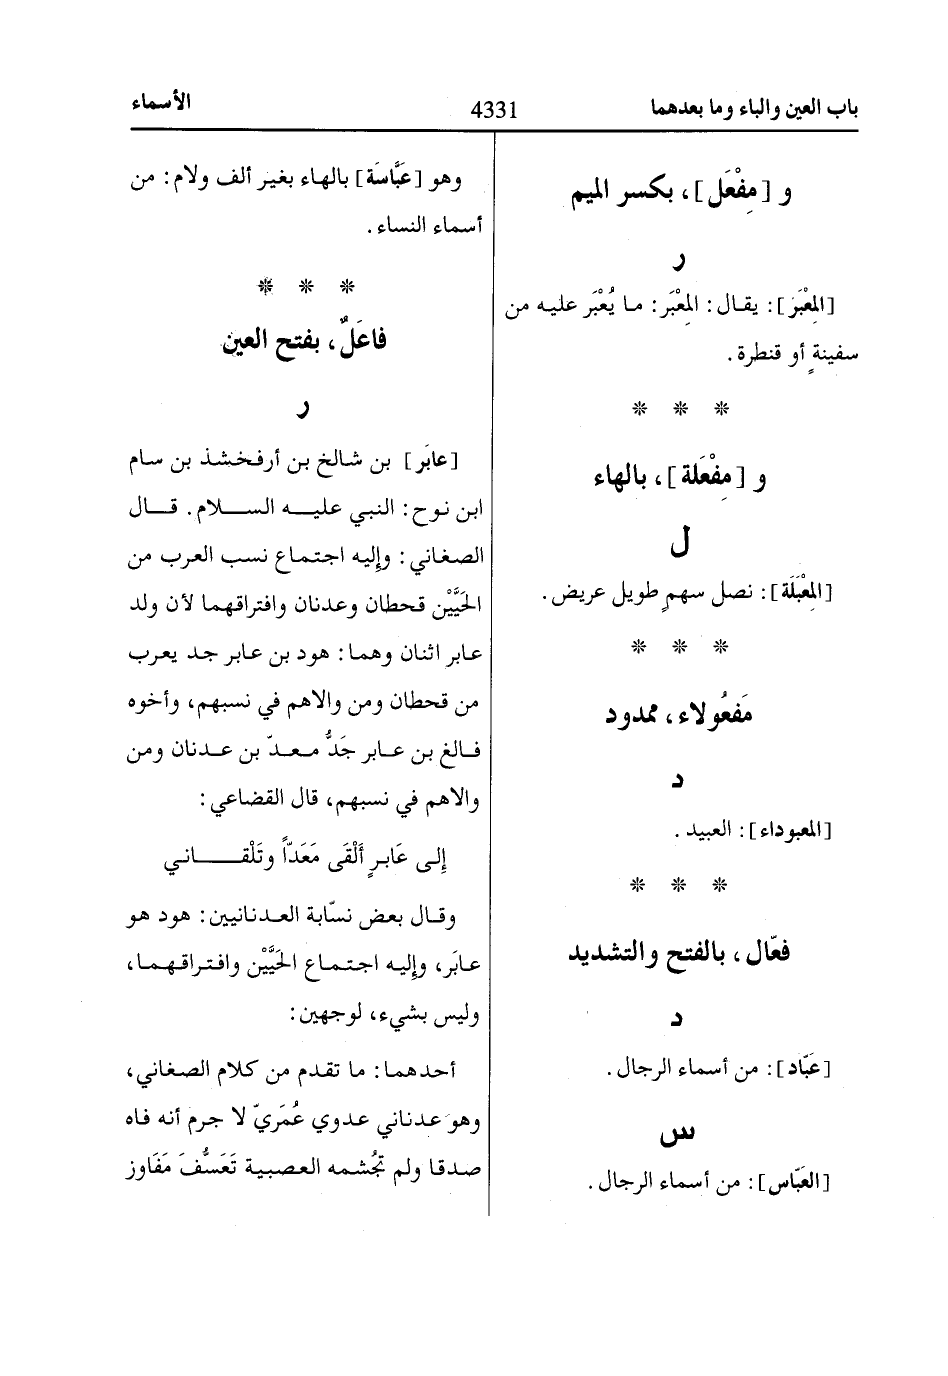 باب العين والباء وما بعدهما
4331
الأسماء
و [مِفْعَل]، بكسر الميم
ر
[المِعْبَر]: يقال: المِعْبَر: ما يُعْبَر عليه من
سفينةٍ أو قنطرة.
* * *
و [مِفْعَلة]، بالهاء
ل
[المِعْبَلَة]: نصل سهمٍ طويل عريض.
* * *
مَفعُولاء، ممدود
د
[المعبوداء]: العبيد.
* * *
فعّال، بالفتح والتشديد
د
[عَبّاد]: من أسماء الرجال.
س
[العَبّاس]: من أسماء الرجال.
وهو [عَبَّاسَة] بالهاء بغير ألف ولام: من
أسماء النساء.
* * *
فاعَلٌ، بفتح العين
ر
[عابَر] بن شالخ بن أرفخشذ بن سام
ابن نوح: النبي عليه السلام. قال
الصغاني: وإليه اجتماع نسب العرب من
الحَيَّيْن قحطان وعدنان وافتراقهما لأن ولد
عابر اثنان وهما: هود بن عابر جد يعرب
من قحطان ومن والاهم في نسبهم، وأخوه
فالغ بن عابر جَدُّ معدّ بن عدنان ومن
والاهم في نسبهم، قال القضاعي:
إلى عَابرٍ أَلْقَى مَعَدّاً وتَلْقاني
وقال بعض نسّابة العدنانيين: هود هو
عابَر، وإليه اجتماع الحَيَّيْن وافتراقهما،
وليس بشيء، لوجهين:
أحدهما: ما تقدم من كلام الصغاني،
وهو عدناني عدوي عُمَريّ لا جرم أنه فاه
صدقا ولم تجُشمه العصبية تَعَسُّفَ مَفَاوز